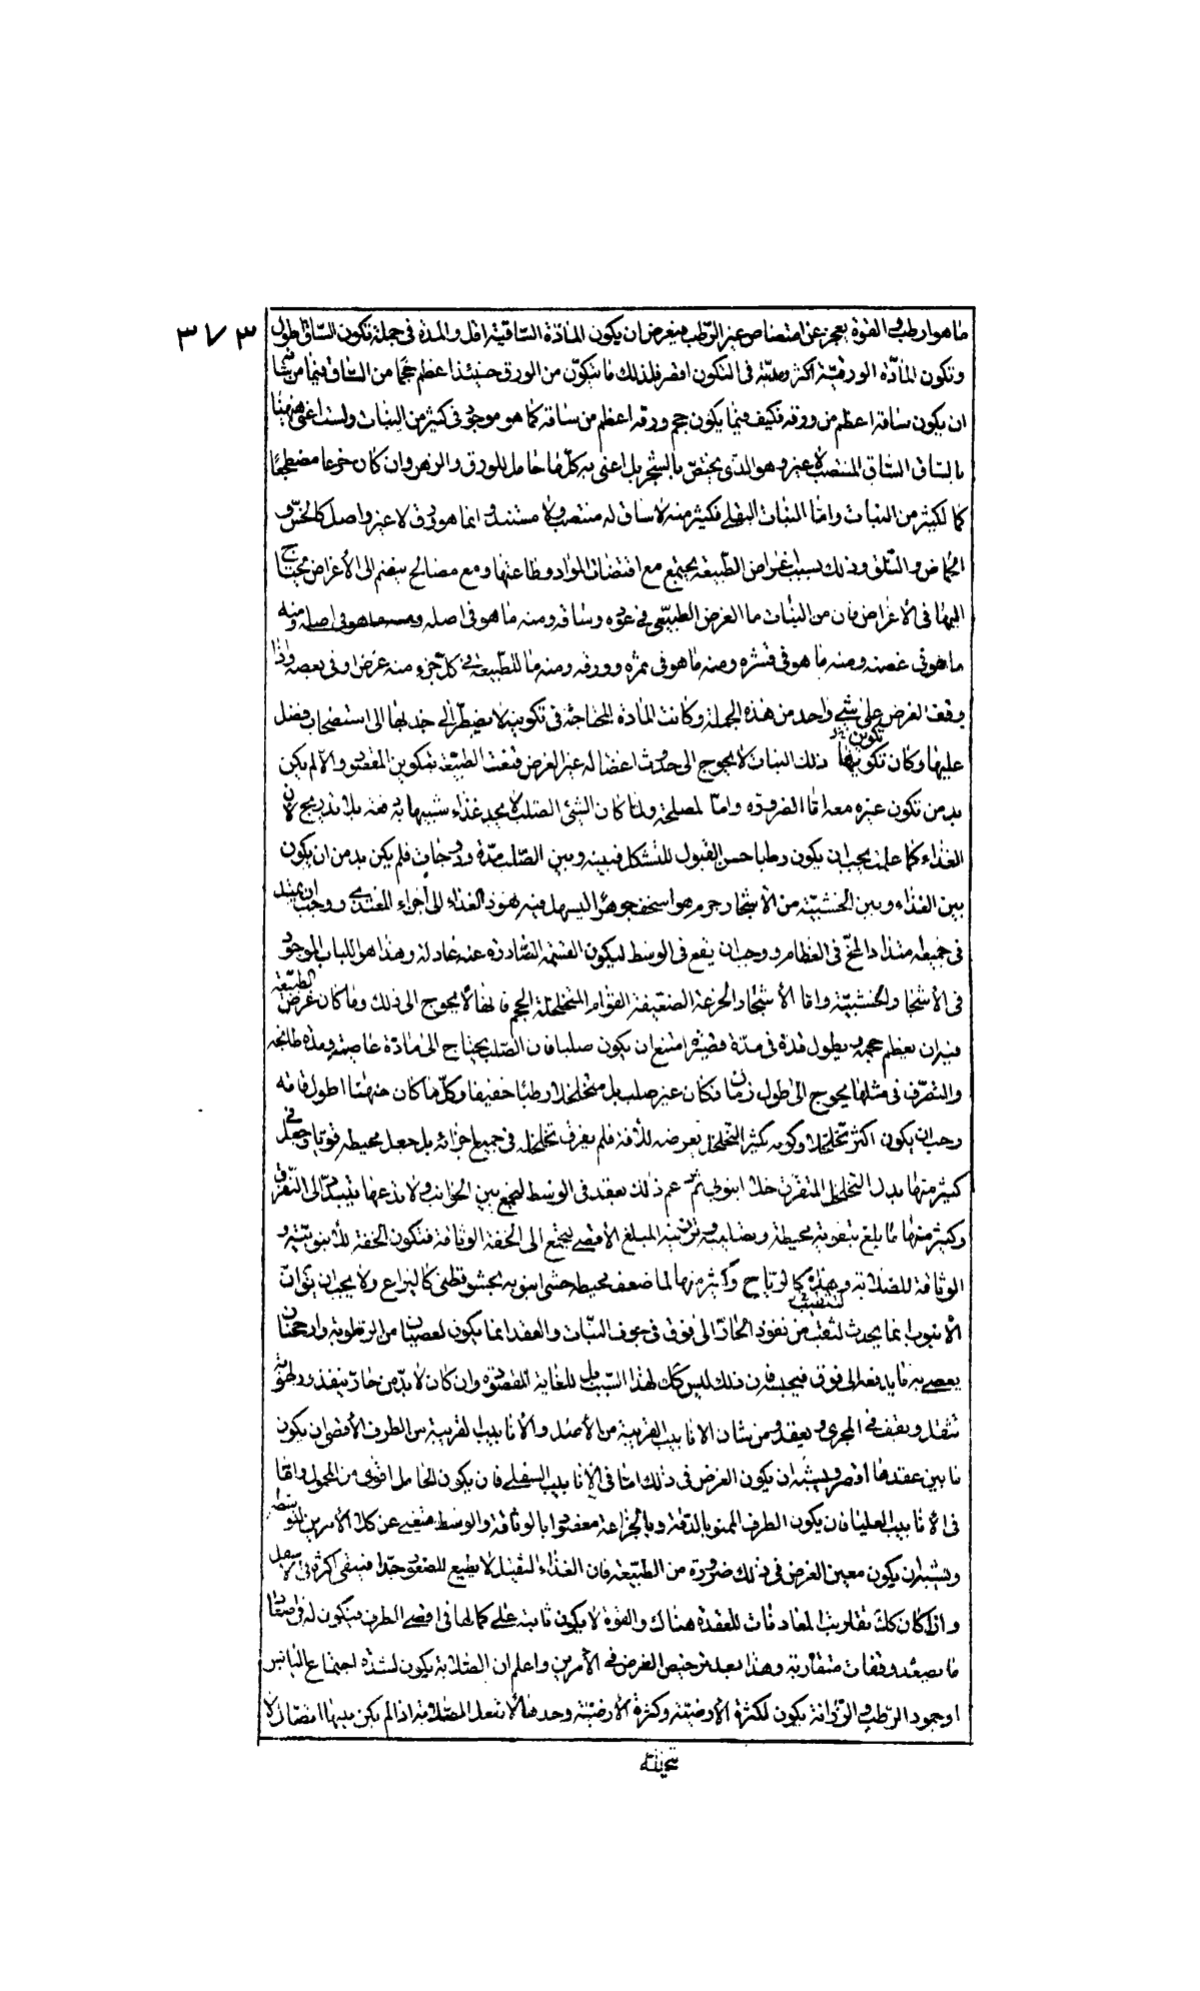 ٣٧٣
ما هو ارطب والقوة يعجز عن امتصاص غير الرطب فيعرض ان يكون المادة الساقية اقل والمدة فى جملة تكون الساق اطول
وتكون المادة الورقية اكثر ومدته فى التكون اقصر فلذلك ما يتكون من الورق حينئذ اعظم حجما من الساق فيما من شانه
ان يكون ساقه اعظم من ورقه فكيف فيما يكون حجم ورقه اعظم من ساقه كما هو موجود فى كثير من النبات ولست اعنى هيهنا
بالساق الساق المنتصب لا غير وهو الذى يختص بالشجر بل اعنى به كل ما حامل للورق والزهر وان كان خرعا مضطجعا
كما لكثير من النبات واما النبات البقلى فكثير منه لا ساق له منتصب ولا مستند وانما هو ورق لا غير واصل كالخس و
الحماض والسلق وذلك بسبب اغراض الطبيعة يجتمع مع اقتضاات المواد وطاعتها ومع مصالح ينضم الى الأغراض محتاج
اليها فى الأغراض فان من النبات ما الغرض الطبيعى فى عوده وساقه ومنه ما هو فى اصله ومنه
ما هو فى غصنه ومنه ما هو فى قشره ومنه ما هو فى ثمره وورقه ومنه ما للطبيعة فى كل جزء منه غرض او فى بعضه واذا
وقف الغرض على شىء واحد من هذه الجملة وكانت المادة المحتاجة فى تكوينه لا يضطر الى جذبها الى استصحاب فضل
عليها وكان تكوينها تكوين ذلك النبات لا يحوج الى حدوث اعضا له غير الغرض قنعت الطبيعة بتكوين المقصود والا لم يكن
بد من تكون غيره معه اما الضرورة واما لمصلحة ولما كان الشئ الصلب لا يجد غذاء شبيها به دفعة بلا تدريج لان
الغذاء كما علمت يجب ان يكون رطبا حسن القبول للتشكل فبينه وبين الصلب مدة ودرجات فلم يكن بد من ان يكون
بين الغذاء وبين الخشبية من الأشجار جرم هو اسخف جوهرا ليسهل فيه نفوذ الغذاء الى أجزاء المغتذى ووجب ان يمتد
فى جميعه امتداد المخ فى العظام ووجب ان يقع فى الوسط ليكون القسمة الصادرة عنه عادلة وهذا هو اللباب الموجود
فى الأشجار الخشبية واما الأشجار الخرعة الضعيفة القوام المتخلخلة الحجم فانها لا يحوج الى ذلك وما كان غرض الطبيعة
فيه ان يعظم حجمه ويطول قده فى مدة قصيرة امتنع ان يكون صلبا فان الصلب يحتاج الى مادة عاصية ومدة طائلة
والتصرف فى مثلها يحوج الى طول زمان فكان غير صلب بل متخلخلا رطبا خفيفا وكل ما كان منها اطول قامة
وجب ان يكون اكثر تخلخلا وكونه بكثير التخلخل تعرضه للآفة فلم يفرق تخلخله فى جميع اجزائه بل جعل محيطه قويا وجعل فى
كثير منها بدل التخلخل المتفرق خلاء انبوبى ثم دعم ذلك بعقد فى الوسط لتجمع بين الجوانب ولا تدعها يتبدد الى التفرق
وكثير منها ما بلغ بتقوية محيطه وتصليبه وترزينه المبلغ الأقصى ليجتمع الى الخفة الوثاقة فتكون الخفة للأنبوبية و
الوثاقة للصلابة وهذه كالرماح وكثير منها لما ضعف محيطه حشى انبوبه بحشو قطنى كاليراع ولا يجب ان يظن ان
الأنبوب انما يحدث لثقب من نفوذ الحار الى فوق فى جوف النبات والعقد انما يكون لعصيان من الرطوبة وارجحنان
يعصى به ما يدفعه الى فوق فيحتبس فان ذلك ليس كك لهذا السبب بل للغاية المقصودة وان كان لا بد من حار ينفذ ورطوبة
تثقل وتقف فى المجرى وتعقد ومن شان الانابيب القريبة من الأصل والأنابيب القريبة من الطرف الأقصى ان يكون
ما بين عقدها اقصر ويشبه ان يكون الغرض فى ذلك اما فى الأنابيب السفلى فان يكون الحامل اقوى من المحمول واما
فى الأنابيب العليا فان يكون الطرف الممنو بالدقة وبالخراعة معضودا بالوثاقة والوسط متغنى عن كلا الأمرين لتوسطه
ويشبه ان يكون معين الغرض فى ذلك ضرورة من الطبيعة فان الغذاء الثقيل لا يطيع للصعود جدا فيبقى اكثره فى الاسفل
واذا كان كك تقاربت المعاقدات للعقدة هناك والقوة لا يكون ثابتة على كمالها فى اقصى الطرف فيكون له فى اصعاد
ما يصعد وقفات متقاربة وهذا بعد ترخيص الغرض فى الأمرين واعلم ان الصلابة يكون لشدة اجتماع اليابس
او جمود الرطب والرزانة يكون لكثرة الأرضية وكثرة الأرضية وحدها لا تفعل الصلابة اذا لم يكن بينها اتصال لا